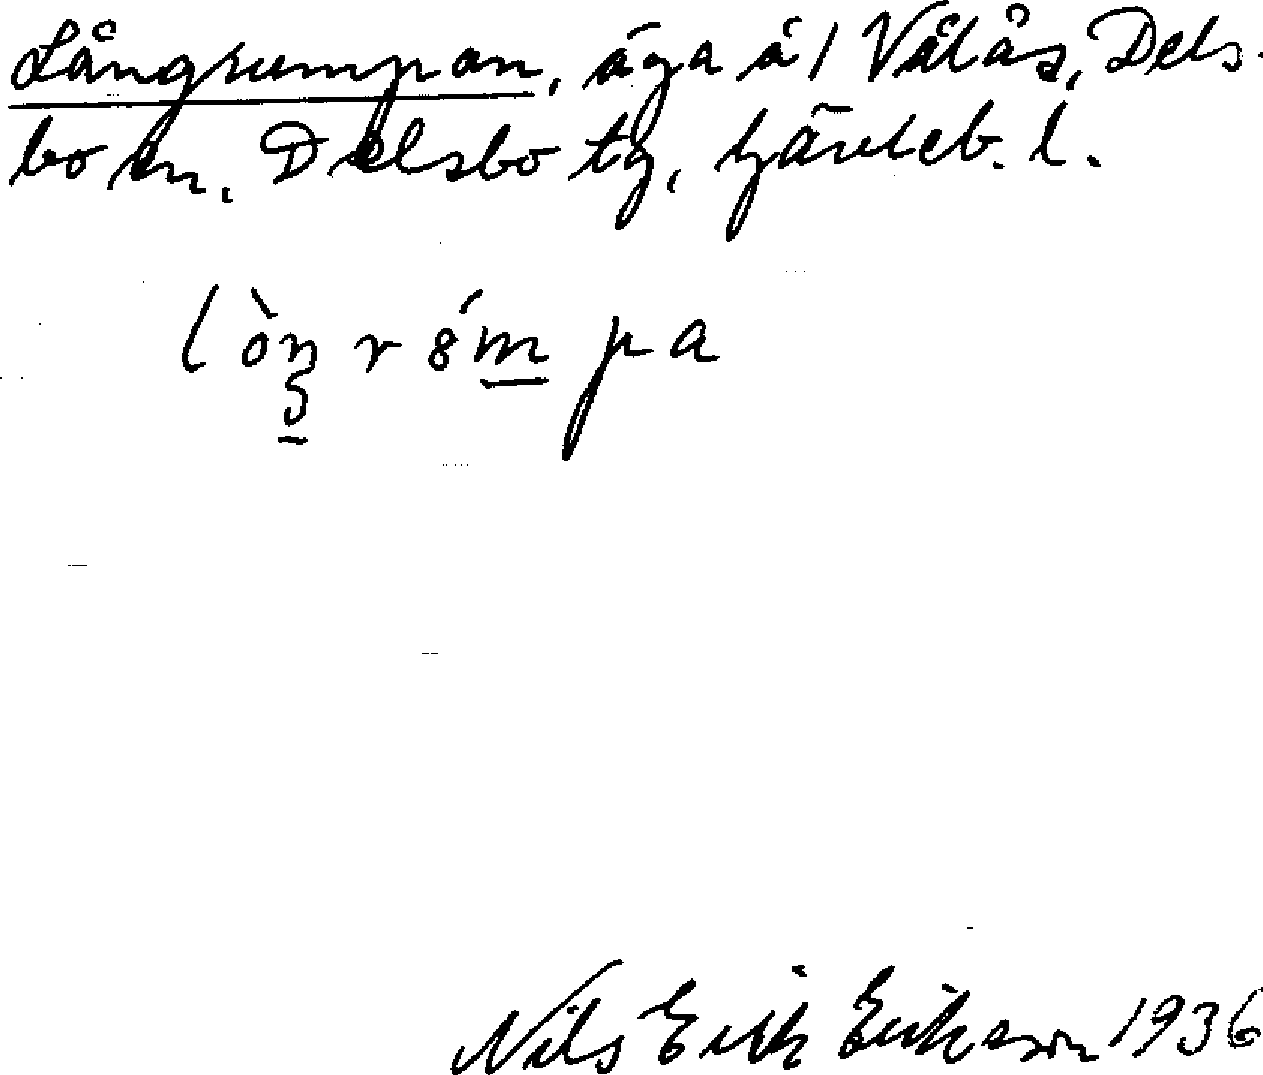 Långrumpan, äga å 1 Vålås, Dels-
bo sn. Delsbo tg, Gävleb. l.
lòŋrómpa
Nils Erik Erikson 1936